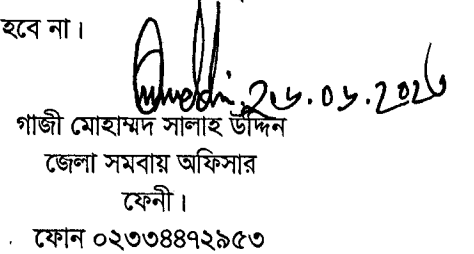 হবে না।
২৬.০১.২০২৬
গাজী মোহাম্মদ সালাহ উদ্দিন
জেলা সমবায় অফিসার
ফেনী।
ফোন ০২৩৩৪৪৭২৯৫৩